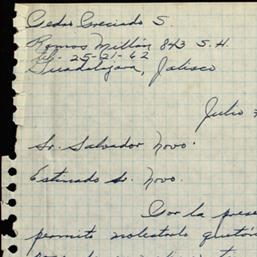 Pedro Preciado S.
Ramos Millán 843 S.H.
25-21-62
Guadalajara, Jalisco
Julio
Sr. Salvador Novo.
Estimado Sr. Novo.
Por la prese
permito molestarlo